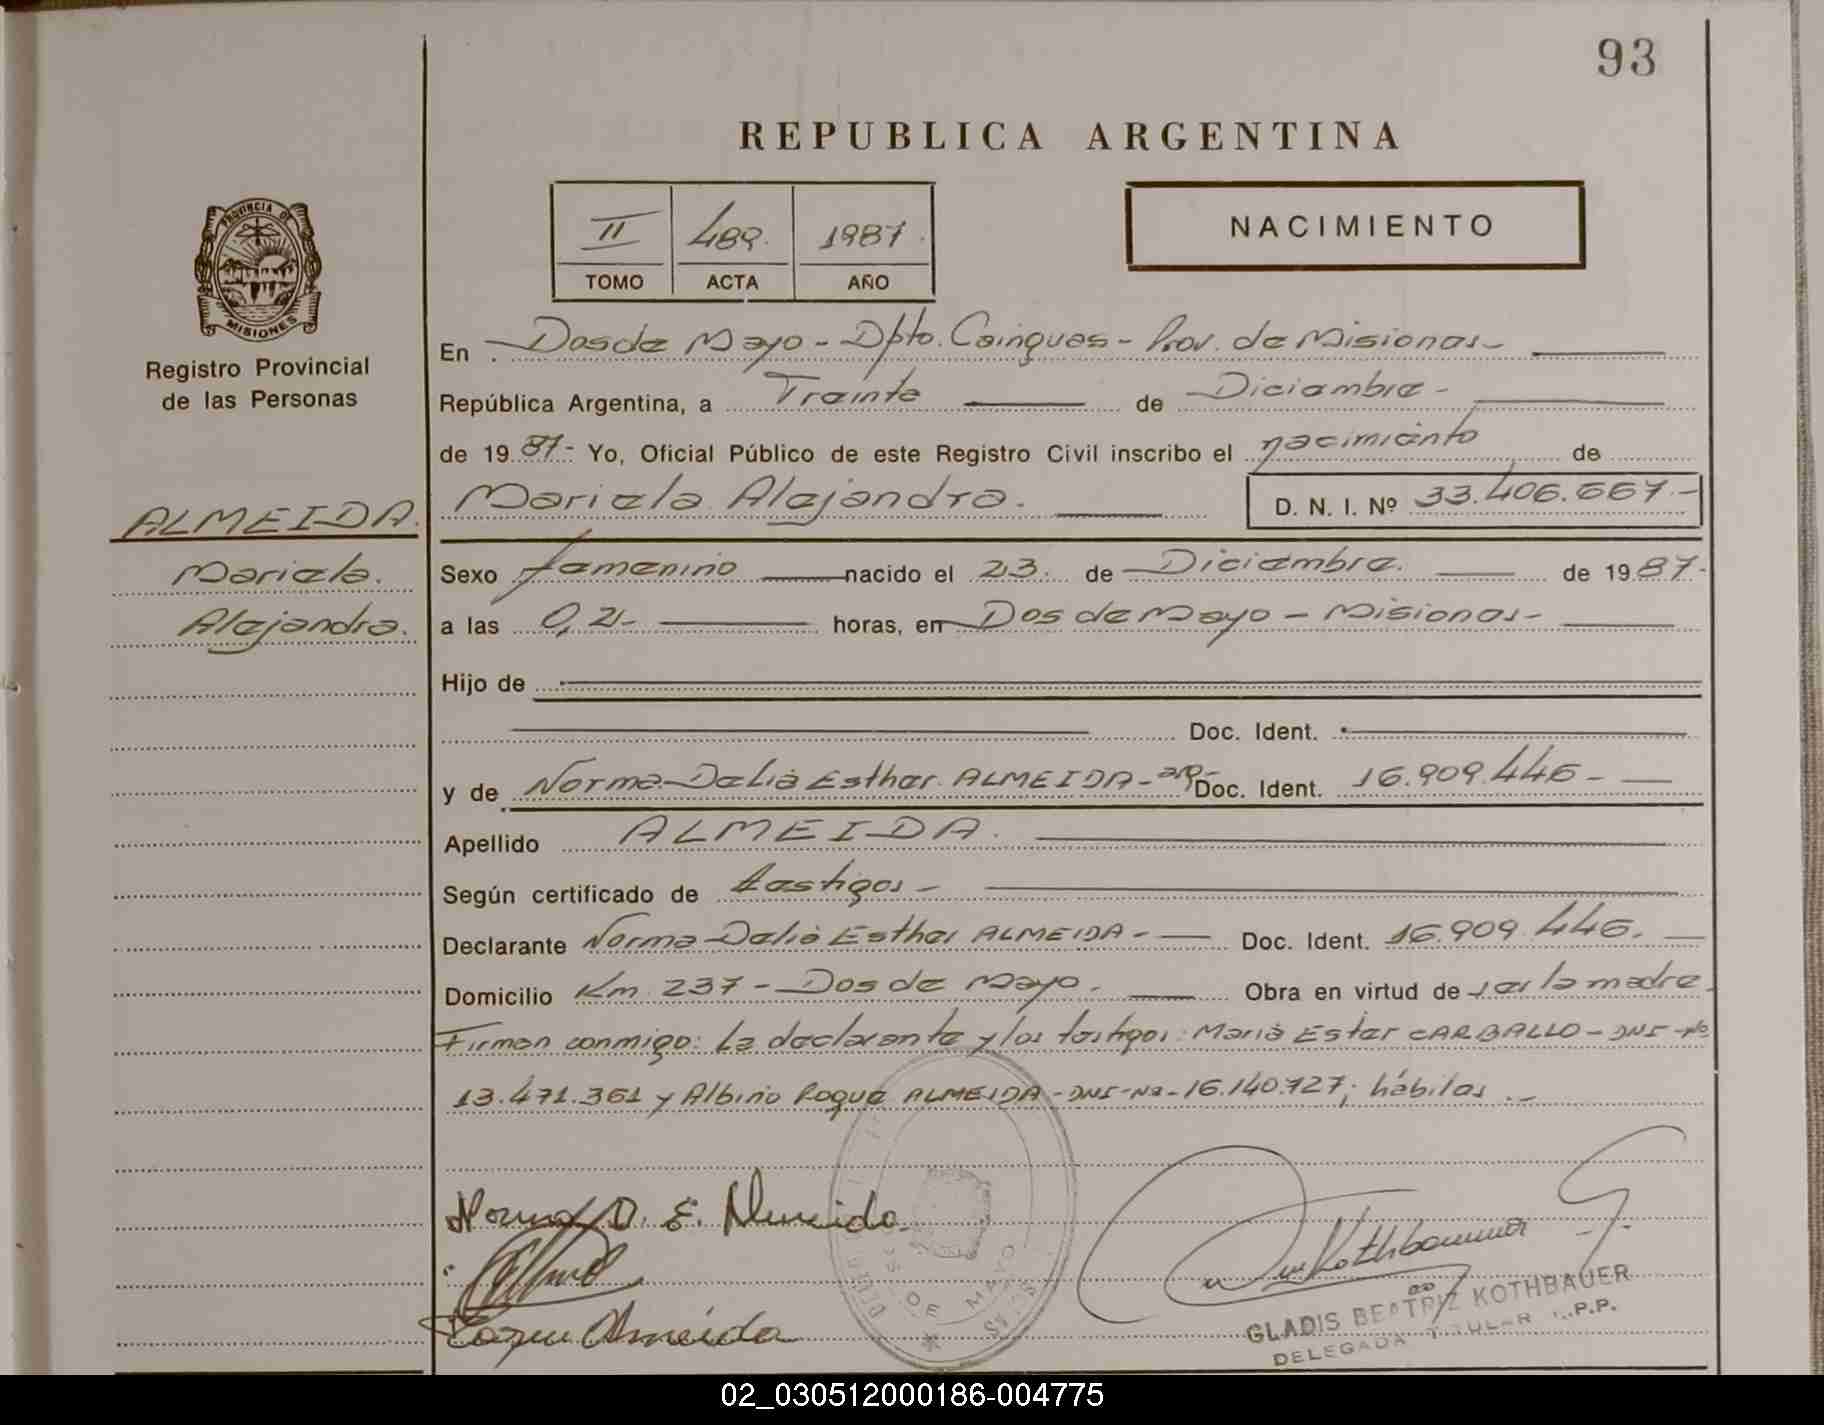 93
REPUBLICA ARGENTINA
II 489. 1987.
TOMO ACTA AÑO
NACIMIENTO
PROVINCIA DE
MISIONES
Registro Provincial
de las Personas
En Dos de Mayo - Dpto. Cainguas - Prov. de Misiones -
República Argentina, a Treinta de Diciembre -
de 1987- Yo, Oficial Público de este Registro Civil inscribo el nacimiento de
Mariela Alejandra. D. N. I. Nº 33.406.667.-
ALMEIDA.
Mariela.
Alejandra.
Sexo femenino nacido el 23. de Diciembre. de 1987.-
a las 0,21- horas, en Dos de Mayo - Misiones -
Hijo de
Doc. Ident.
y de Norma Delia Esther ALMEIDA - arg- Doc. Ident. 16.909.446 -
Apellido ALMEIDA.
Según certificado de testigos -
Declarante Norma Delia Esther ALMEIDA - Doc. Ident. 16.909.446.
Domicilio Km 237 - Dos de Mayo. Obra en virtud de ser la madre.
Firman conmigo: La declarante y los testigos: Maria Ester CARBALLO - DNI - Nº
13.471.361 y Albino Roque ALMEIDA - DNI - Nº - 16.140.727; hábiles . -
Norma D. E. Almeida.
Roque Almeida
DOS DE MAYO
Kothbauer
GLADIS BEATRIZ KOTHBAUER
DELEGADA TITULAR R.P.P.
02_030512000186-004775